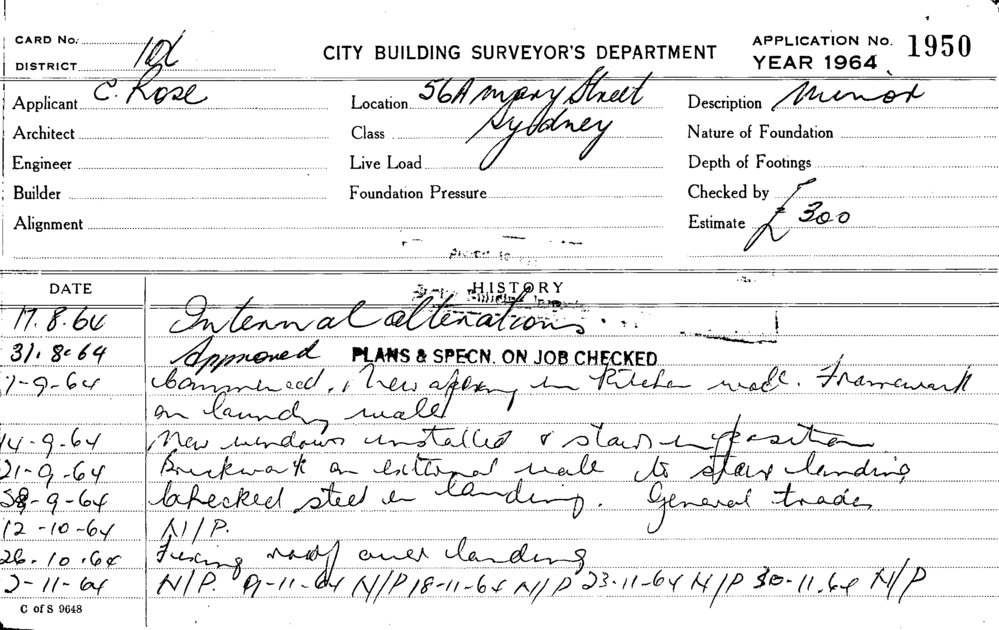 CARD No.
DISTRICT
CITY BUILDING SURVEYOR'S DEPARTMENT
APPLICATION No. 1950
YEAR 1964
Applicant C. Rose
Location 56A Mary Street
Sydney
Description Minor
Architect
Class
Nature of Foundation
Engineer
Live Load
Depth of Footings
Builder
Foundation Pressure
Checked by
Alignment
Estimate £300
DATE
HISTORY
17.8.64 Internal alterations
31.8.64 Approved PLANS & SPECN. ON JOB CHECKED
7-9-64 Commenced. New opening in kitchen wall. Framework
on laundry wall
14-9-64 New windows installed & stairs in position
21-9-64 Brickwork on external wall to stair landing
28-9-64 Checked steel in landing. General trades
12-10-64 N/P.
26.10.64 Fixing roof over landing
2-11-64 N/P. 9-11-64 N/P 18-11-64 N/P 23-11-64 N/P 30-11.64 N/P
C of S 9648